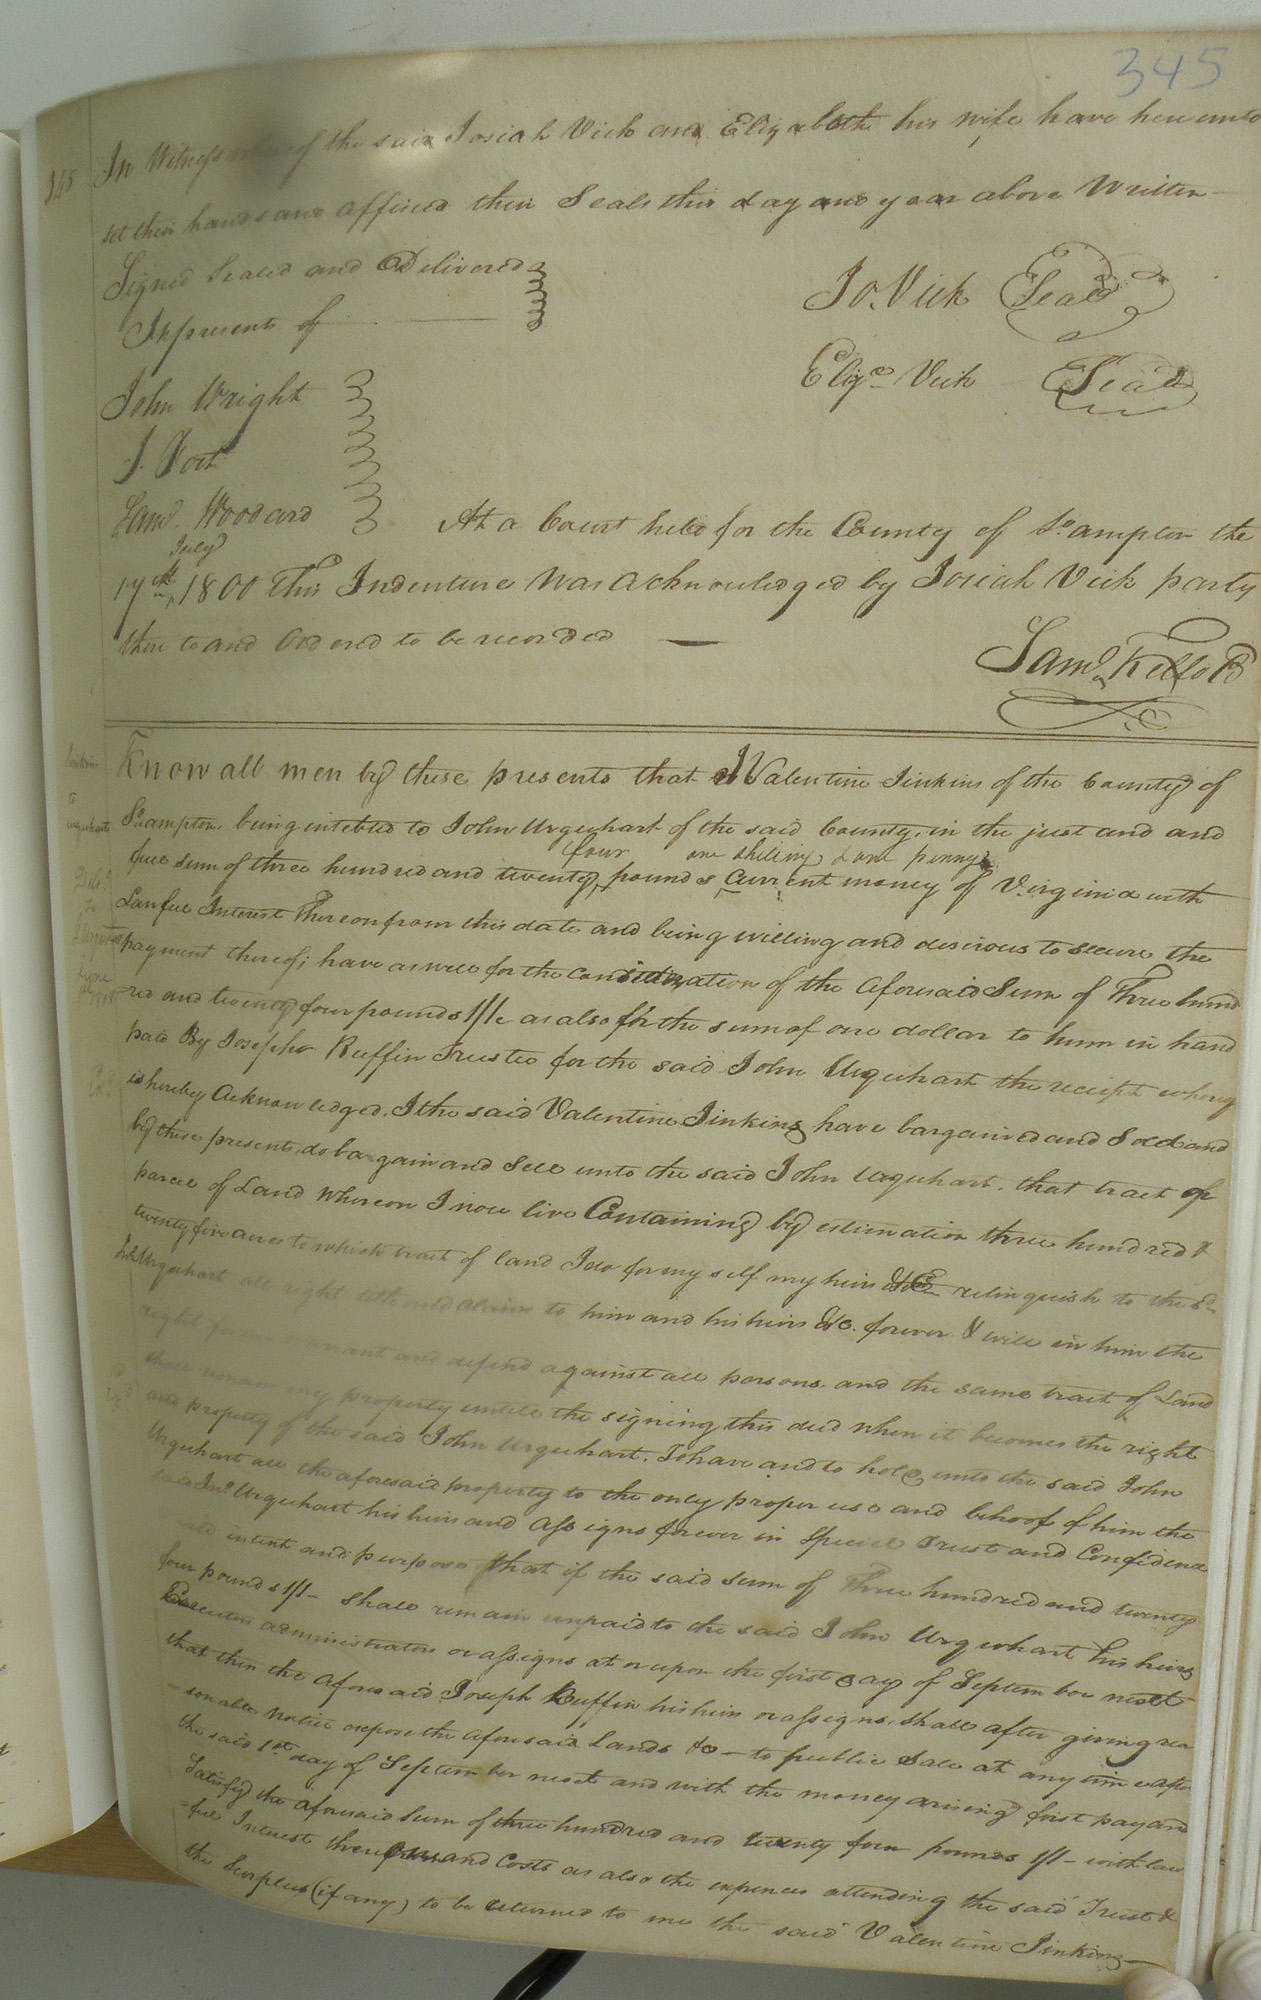 345
345
In Witness whereof the said Josiah Vick and Elizabeth his wife have hereunto
set their hands and affixed their Seals this day and year above Written
Signed Sealed and Delivered
In presents of
Jo. Vick Seal
Eliza Vick Seal
John Wright
J. Fort
Saml. Woodard At a Court held for the County of So.ampton the
July
17th, 1800 This Indenture was acknowledged by Josiah Vick party
there to and Ordered to be recorded
Saml. Kello
Know all men by these presents that I Valentine Jinkins of the County of
to
Urquhart
So.ampton, being intebted to John Urquhart of the said County, in the just and and
four one shilling & one penny
full sum of three hundred and twenty, pounds Current money of Virginia with
Lawful Interest Thereon from this date and being willing and desirous to secure the
payment thereof; have as well for the consideration of the aforesaid Sum of Three hund
red and twenty four pounds 1/1 as also for the sum of one dollar to him in hand
paid By Joseph Ruffin Trustee for the said John Urquhart the receipt whereof
is hereby Acknowledged, I the said Valentine Jinkins have bargained and Sold and
by these presents, do bargain and Sell unto the said John Urquhart, that tract or
parcel of Land whereon I now live Containing by estimation three hundred &
twenty five acres to which tract of land I do for my self my heirs &C relinquish to the sd.
Jno. Urquhart all right title and claim to him and his heirs &c. forever & will in him the
right forever warrant and defend against all persons, and the same tract of Land
shall remain my property untill the signing this deed when it becomes the right
and property of the said John Urquhart, To have and to hold, unto the said John
Urquhart all the aforesaid property to the only proper use and behoof of him the
said Jno. Urquhart his heirs and assigns forever in Special Trust and Confidence
intent and purpose that if the said sum of Three hundred and twenty
four pounds 1/1 - shall remain unpaid to the said John Urquhart his heirs
Executors administrators or assigns at or upon the first day of September next
that then the aforesaid Joseph Ruffin his heirs or assigns, shall after giving rea
sonable notice expose the aforesaid Lands &c - to public Sale at any time after
the said 1st day of September next and with the money arising first pay and
Satisfy the aforesaid Sum of three hundred and twenty four pounds 1/1 - with law
ful Interest thereon and Costs as also the expences attending the said Trust &
the Surplus (if any) to be returned to me the said Valentine Jinkins